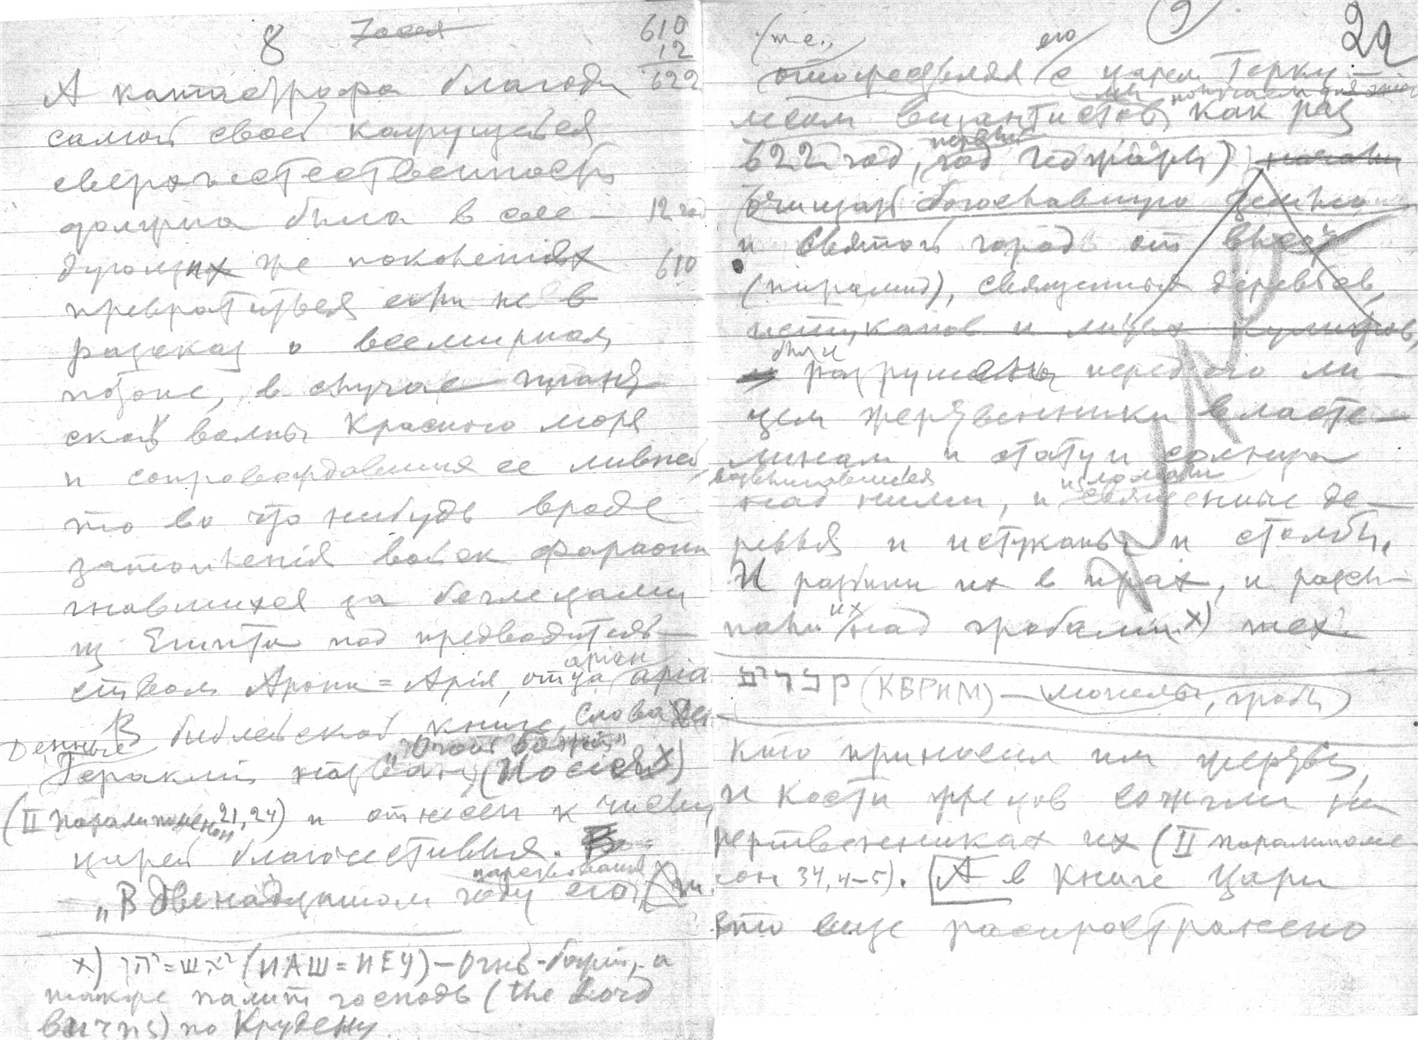 8
610
12
622
А катастрофа благодаря
самой своей кажущейся
сверхъестественности
должна была в сле-
дующих же поколениях
превратиться если не в
рассказ о всемирном
потопе, в случае
ской волны Красного моря
и сопровождавшия ее ливней,
то во что нибудь вроде
затопленія войск фараона
гнавшихся за беглецами
из Египта под предводитель-
ством Арона = Арія, отца аріан
В библейской книге слова
Денные
Гераклий назван „Огонь божий" (Иосия х)
(II Паралипоменон 21, 24) и отнесен к числу
царей благочестивых.
„В двенадцатом году его царствования
12 год
610
х) יאש=יהו (ИАШ=ИЕУ) – Огнь-божій, а
также палит господь (the Lord
burns) по Крудену.
9
29
(т.е.,
отождествляя его с царем
византистов, как раз
622 год, первый год геджры)
очищать богославную землю
и святой город от высот
(пирамид), священных деревьев,
истуканов и литых кумиров,
были разрушены перед его ли-
цем жертвенники власте-
линам и статуи солнца
возвышавшиеся над ними, и изломаны священные де-
ревья и истуканы и столбы.
И разбили их в прах, и рассы-
пали их над гробами х) тех
קברים (КБРИМ) – могилы, гробы)
кто приносил им жертвы,
и кости жрецов сожгли на
жертвенниках их (II Паралипоме-
нон 34, 4–5). А в книге Цари
это еще распространено